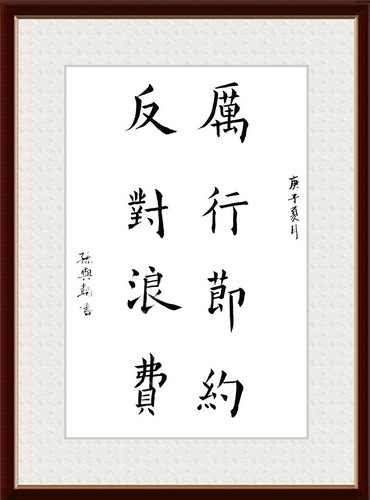 庚子夏月
厲行節約
反對浪費
孫興翰書